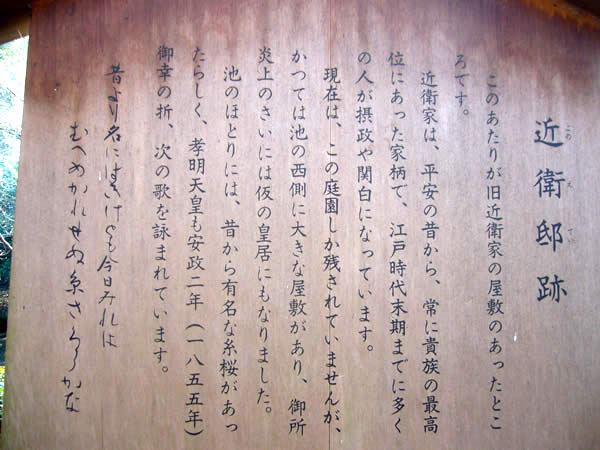 近衛邸跡
このえてい
このあたりが旧近衛家の屋敷のあったとこ
ろです。
近衛家は、平安の昔から、常に貴族の最高
位にあった家柄で、江戸時代末期までに多く
の人が摂政や関白になっています。
現在は、この庭園しか残されていませんが、
かつては池の西側に大きな屋敷があり、御所
炎上のさいには仮の皇居にもなりました。
池のほとりには、昔から有名な糸桜があっ
たらしく、孝明天皇も安政二年(一八五五年)
御幸の折、次の歌を詠まれています。
昔より名にはきけども今日みれば
むべめかれせぬ糸さくらかな